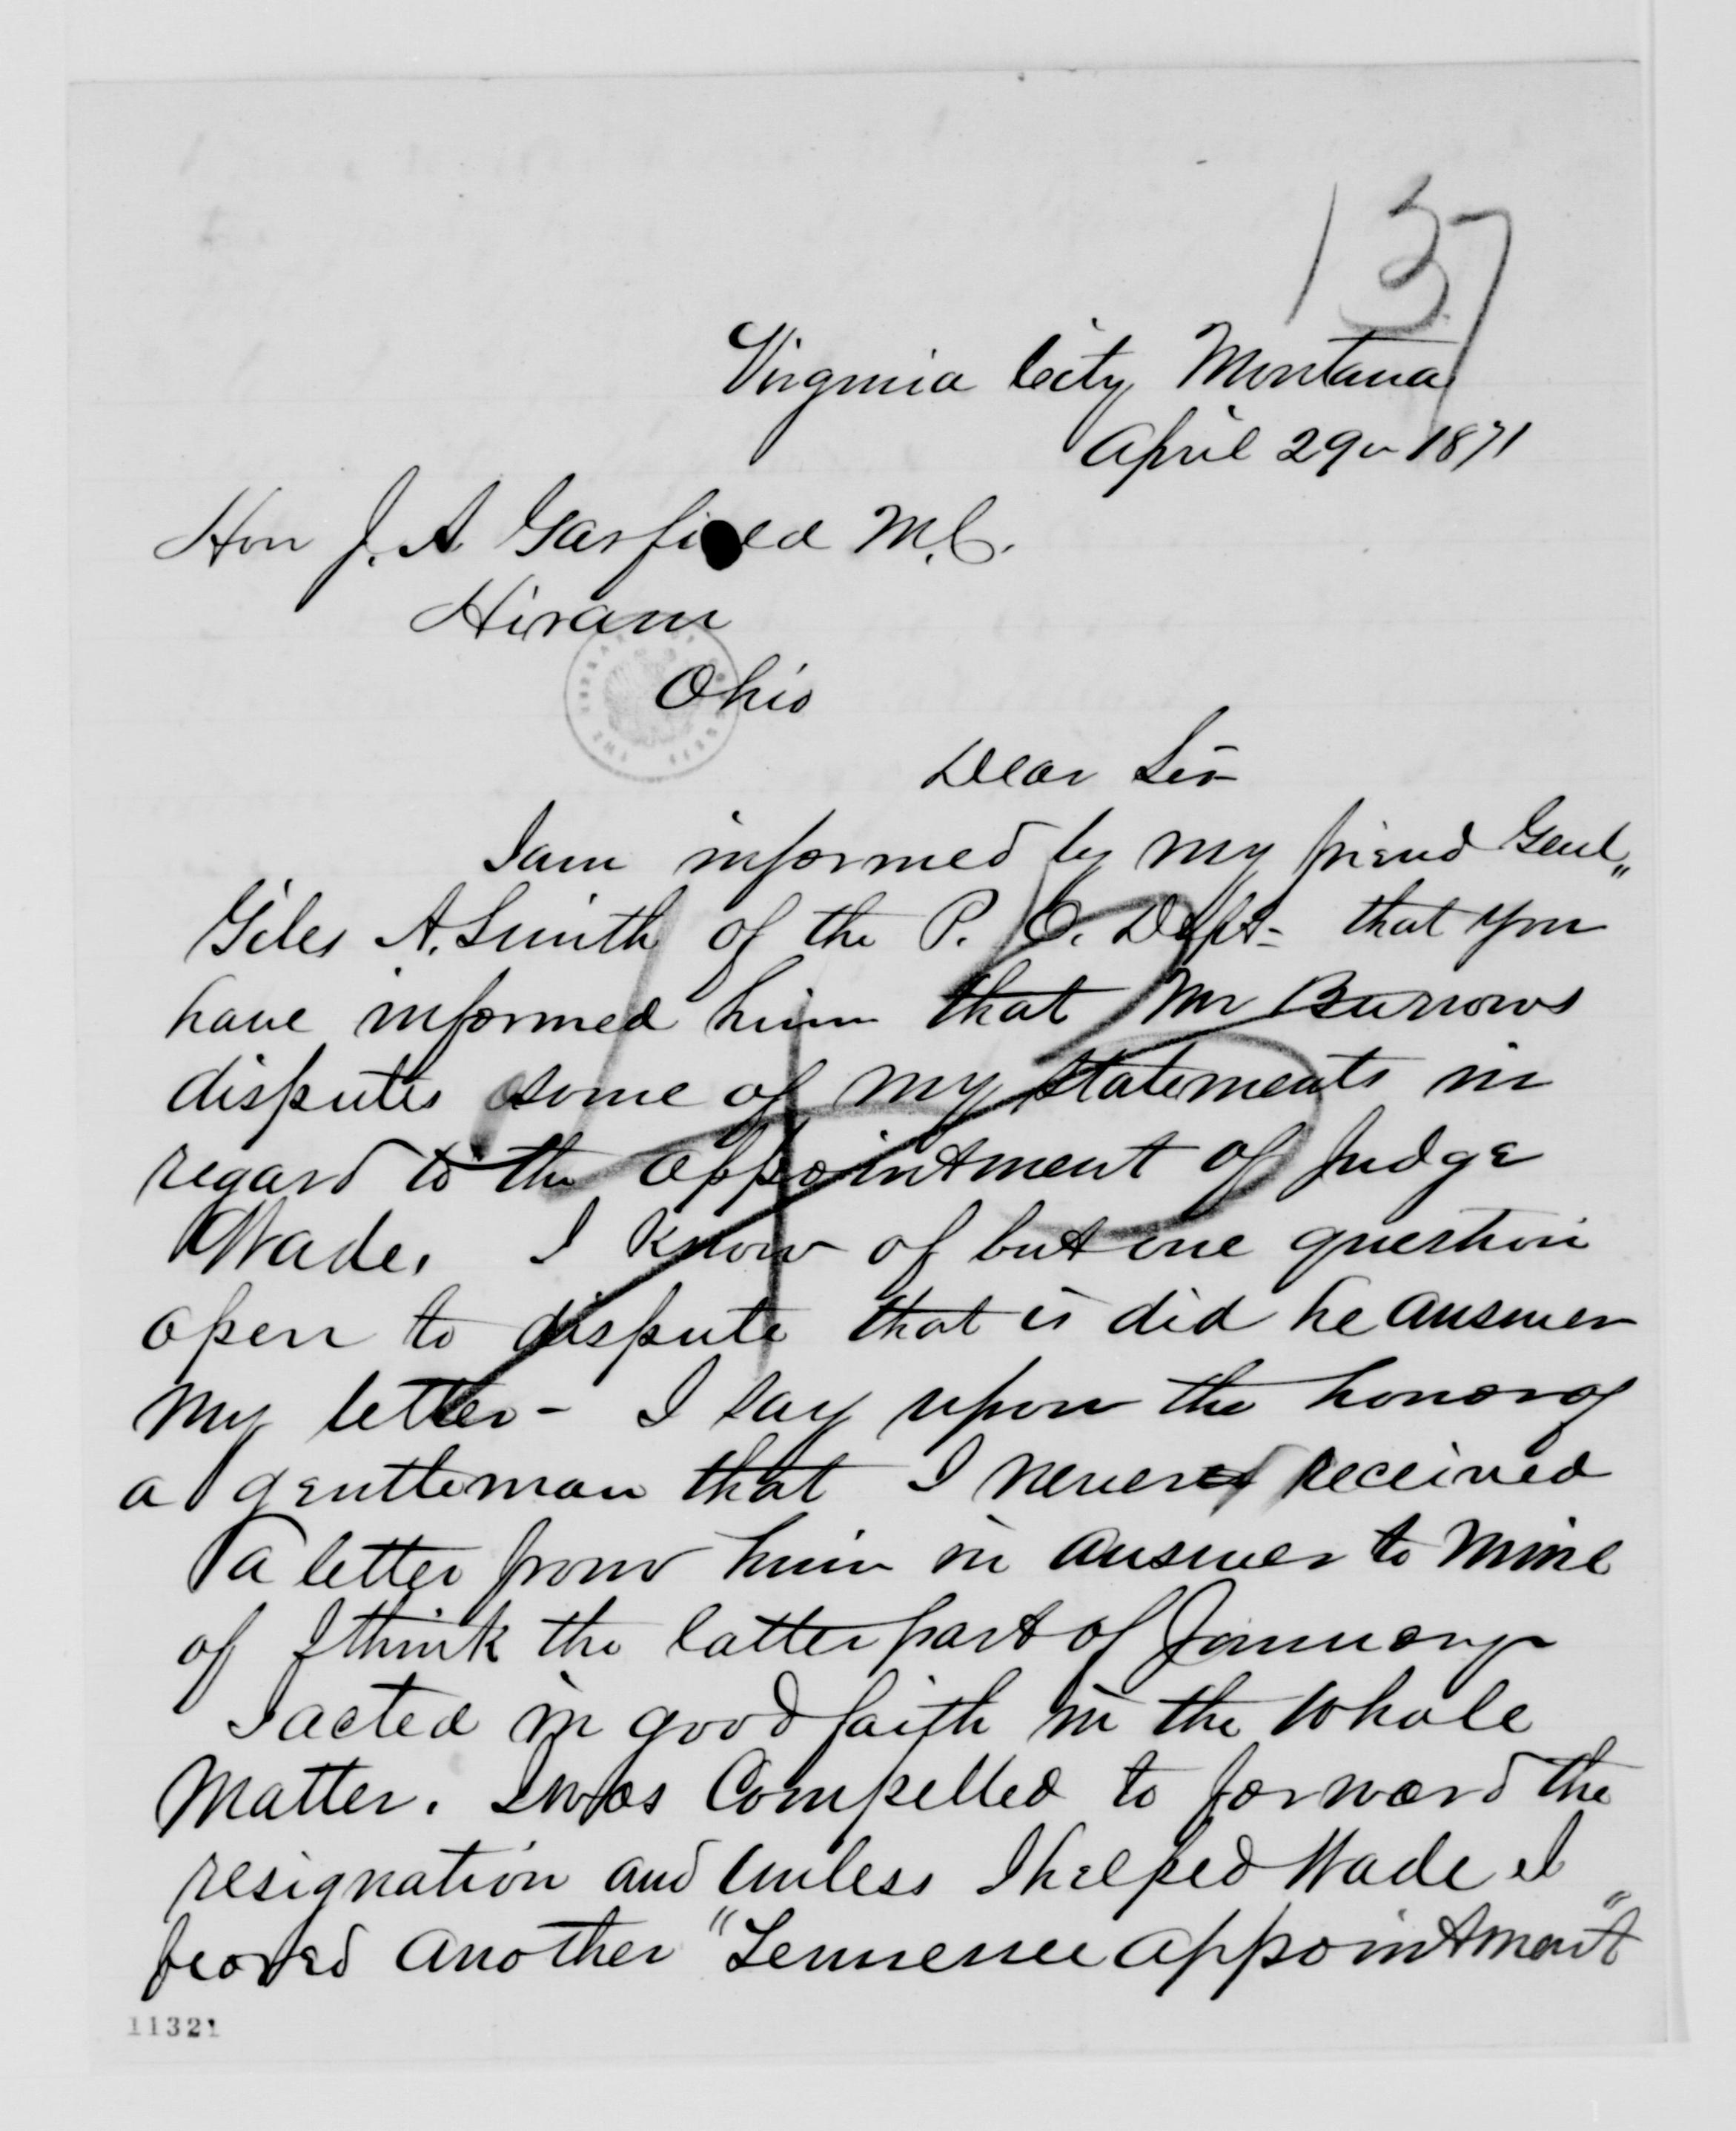 137
Virginia City Montana
April 29" 1871
Hon J. A Garfield M.C.
Hiram
Ohio
Dear Sir
I am informed by my friend Genl"
Giles A. Smith of the P. O. Dept- that you
have informed him that Mr Burrows
disputes some of my statements in
regard to the appointment of Judge
Wade. I know of but one question
open to dispute that is did he answer
my letter- I say upon the honor of
a gentleman that I never received
a letter from him in answer to mine
of I think the latter part of January
I acted in good faith in the whole
matter. I was compelled to forward the
resignation and unless I helped Wade I
feared another "Tennessee appointment"
11321